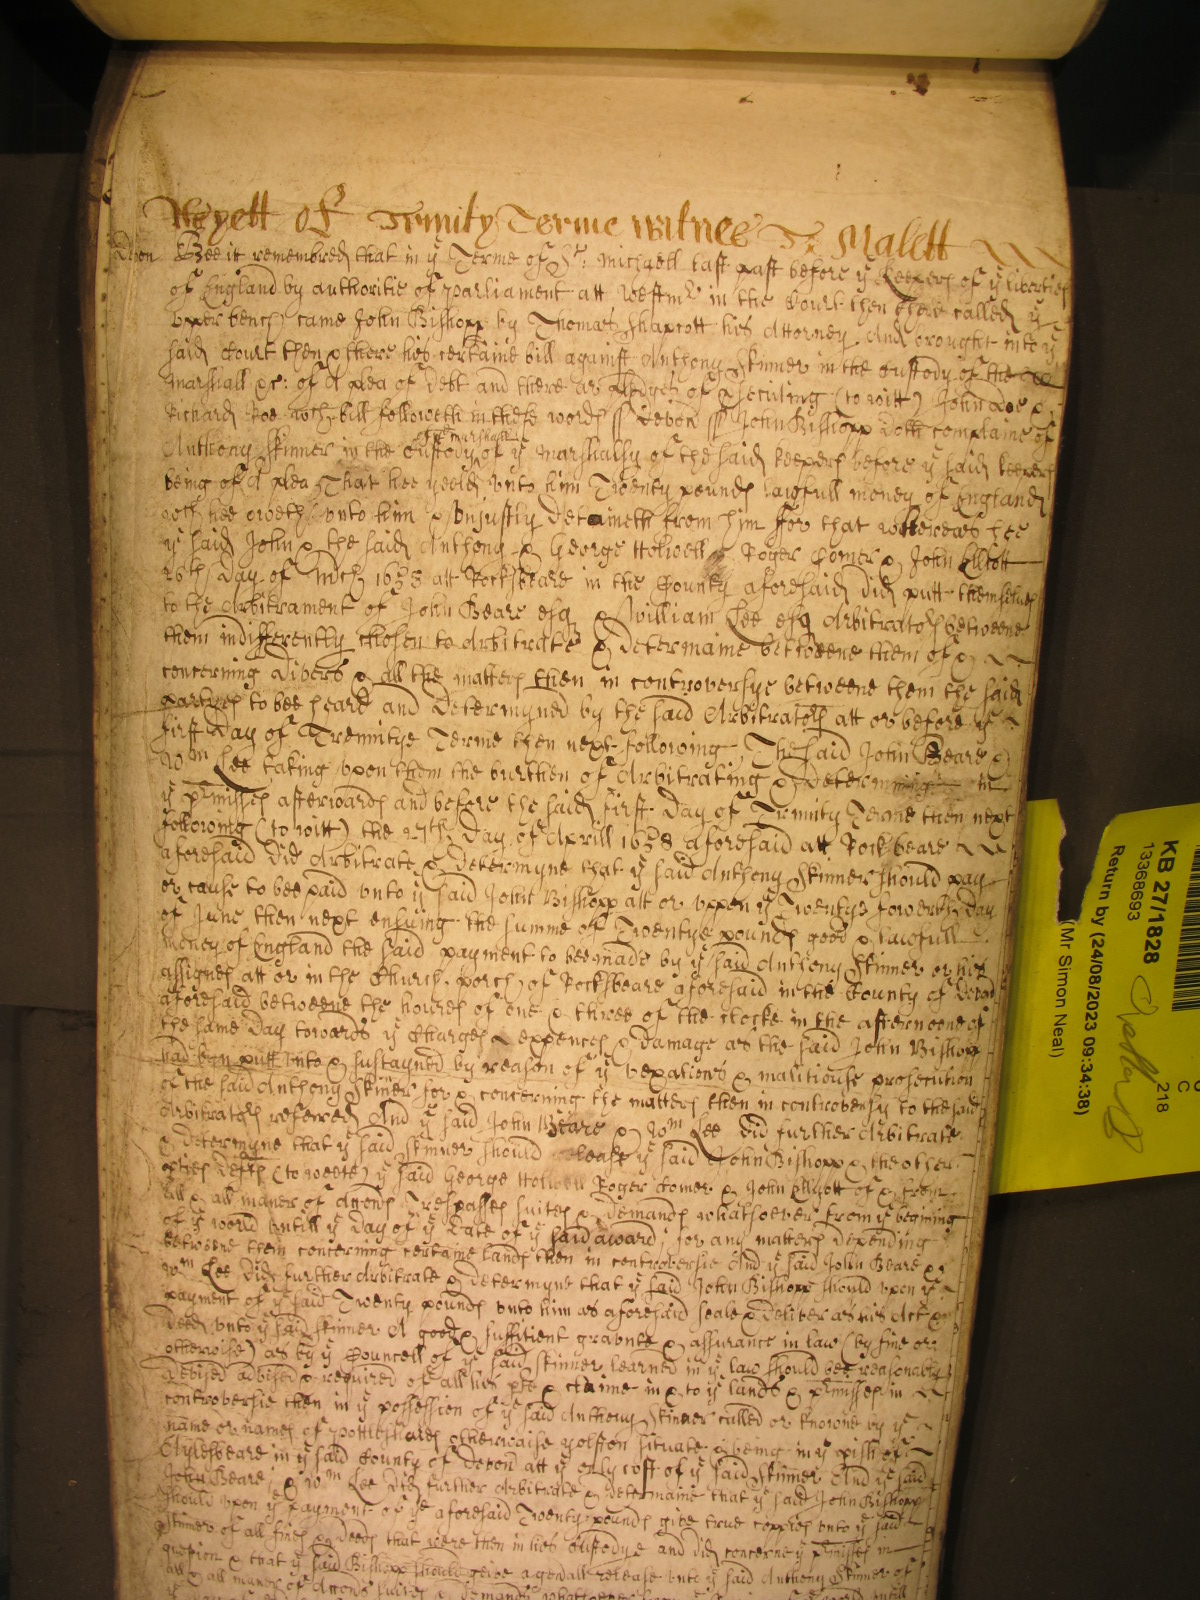 Wyett of Trinity Terme Witnes T. Malett
Devon Bee it remembred that in yͤ Terme of Sᵗ: Michaell last past before yͤ Keepers of yͤ liberties
of England by authoritie of parliament att Westmʳ in the Court then there called yͤ
upper bench came John Bishopp by Thomas Shapcott his Attorney And brought into yͤ
said Court then & there his certaine bill against Anthony Skinner in the custody of the
Marshall &c: of A plea of Debt and there are pledges of psecuting (to witt) John Doe &
Richard Roe wch bill followeth in these words ss Devon ss John Bishopp doth complaine of
Anthony Skinner in the custody of yͤ marshall of yͤ Marshalsy of the said keepers before yͤ said keepers
being of A plea That hee yeeld unto him Twenty pounds lawfull money of England
wch hee oweth unto him & uniustly detaineth from him for that whereas hee
yͤ said John & the said Anthony & George Holwell Roger Comer & John Ellott
26th day of Mch 1658 att Rockbeare in the County aforesaid did putt themselves
to the Arbitrament of John Beare esq & William Lee esq Arbitrators betweene
them indifferently chosen to Arbitrate & determaine betweene them of &
concerning divers & all the matters then in controversye betweene them the said
partyes to bee heard and determyned by the said Arbitrators att or before yͤ
first day of Trennitye Terme then next following The said John Beare &
Wm Lee taking upon them the burthen of Arbitrating & determining
yͤ pᵉmisses afterwards and before the said first day of Trinity Terme then next
following (to witt) the 27th day of Aprill 1658 aforesaid att Rockbeare
aforesaid did Arbitrate & determyne that yͤ said Anthony Skinner should pay
or cause to bee paid unto yͤ said John Bishopp att or uppon yͤ Twenty fowerth day
of June then next ensuing the summe of Twentye pounds good & lawfull
money of England the said payment to bee made by yͤ said Anthony Skinner or his
assignes att or in the Church porch of Rockbeare aforesaid in the County of Devon
aforesaid betweene the houres of one & three of the clocke in the afternoone of
the same day towards yͤ Charges & expences & damage as the said John Bishop
had bin putt into & sustayned by reason of yͤ vexations & malitiouse prosecution
of the said Anthony Skiner for & concerning the matters then in controversy to the said
Arbitrators referred And yͤ said John Beare & Wm Lee did further Arbitrate
& determyne that yͤ said Skinner should release yͤ said John Bishopp & the other
pties (to weete) yͤ said George Holwell Roger Comer & John Ellyott of & from
all & all maner of Accons Trespasses suites & demands whatsoever from yͤ begining
of yͤ world untill yͤ day of yͤ date of yͤ said award for any matters depending
betweene them concerning certaine lands then in controversie And yͤ said John Beare &
Wm Lee did further Arbitrate & determyne that yͤ said John Bishopp should upon yͤ
payment of yͤ said Twenty pounds unto him as aforesaid seale & deliver as his Act &
deed unto yͤ said Skinner A good & suffitient grauntee & assurance in law (by fine or
otherwise) as by yͤ Councell of yͤ said Skinner learned in yͤ law should bee reasonably
devised advised & required of all his & claime in & to yͤ lands & pᵉmisses in
controversie then in yͤ possession of yͤ said Anthony Skinner called or knowne by yͤ
name or names of otherwaise situate & being in yͤ pish of
Aylesbeare in yͤ said County of Devon att yͤ only cost of yͤ said Skinner And yͤ said
John Beare & Wm Lee did further Arbitrate & determaine that yͤ said John Bishopp
should upon yͤ payment of yͤ aforesaid Twenty pounds give true coppies unto yͤ said
Skinner of all fines & deeds that were then in his Custodye and did concerne yͤ pᵉmisses in
question & that yͤ said Bishopp should geive a genall release unto yͤ said Anthony Skinner of
all & all maner of Accons suites & demands whatsoever
KB 27/1828
133686693
Return by (24/08/2023 09:34:38)
(Mr Simon Neal)
C
218